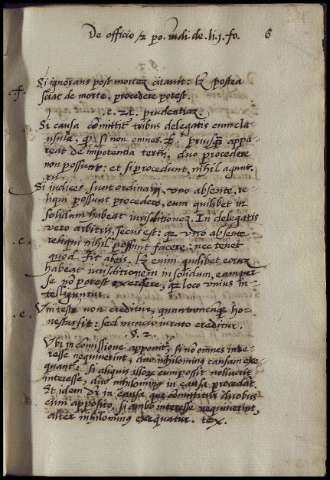 De officio & po. iudi. de. li. j. fo. 6
.f. Si ignorans post mortem citauit: licet postea
sciat de morte, procedere potest.
c. 21. prudentiam
Si causa committitur tribus delegatis cum clau
sula, quod si non omnes, priusquam appa
reat de impotentia tertii, duo procedere
non possunt: et si procedunt, nihil agunt.
Si iudices sunt ordinarii, uno absente, re
liqui possunt procedere, cum quilibet in
solidum habeat iurisdictionem. In delegatis
.c. vero arbitris, secus est: quia uno absente
reliqui nihil possunt facere: nec tenet
quod fit ab eis. licet enim quilibet eorum
habeat iurisdictionem in solidum, eam per
se non potest exercere, quia loco unius in
telliguntur.
.c. Uni testi non creditur, quantumcunque ho
nestus sit: sed
creditur.
§. 2.
Ubi in commissione apponitur, si non omnes inte
resse nequiuerint, duo nihilominus causam exe
quantur. Si aliquis illorum composit noluerit
interesse, duo nihilominus in causa procedat.
Et idem in causa que committitur duobus
cum apposito, si ambo interesse nequiuerint,
alter nihilominus exequatur. tex.